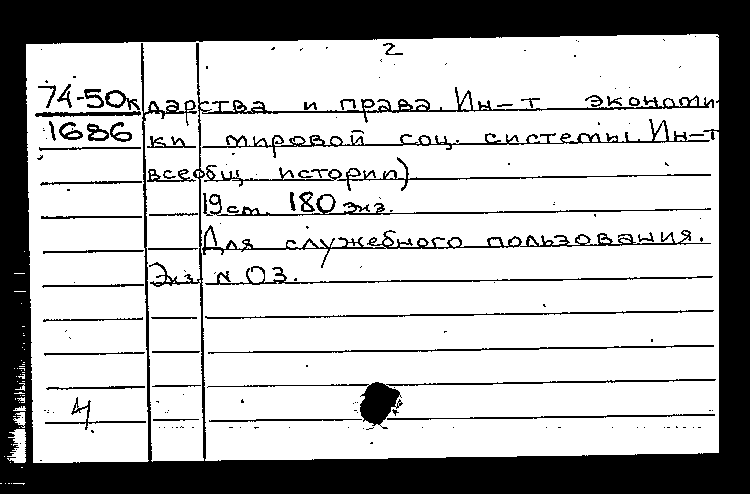 2
74-50к дарства и права. Ин-т экономи-
1686 ки мировой соц. системы. Ин-т
всеобщ. истории)
19 ст. 180 экз.
Для служебного пользования.
Экз. N 03.
4